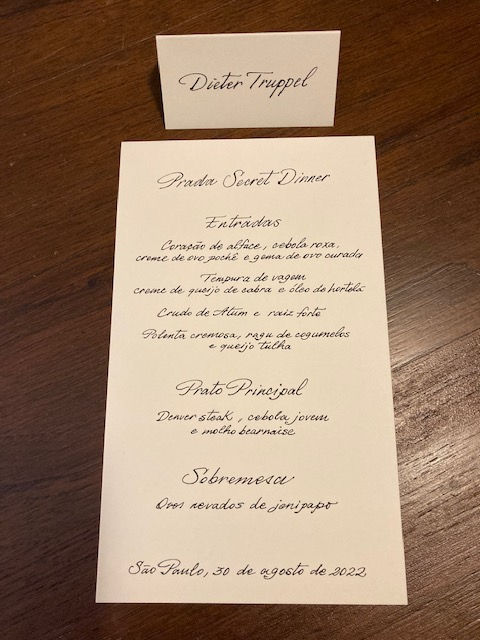 Dieter Truppel
Prada Secret Dinner
Entradas
Coração de alface, cebola roxa,
creme de ovo pochê e gema de ovo curada
Tempura de vagem
creme de queijo de cabra e óleo de hortelã
Crudo de Atum e raiz forte
Polenta cremosa, ragu de cogumelos
e queijo tulha
Prato Principal
Denver steak, cebola jovem
e molho bearnaise
Sobremesa
Ovos nevados de jenipapo
São Paulo, 30 de agosto de 2022